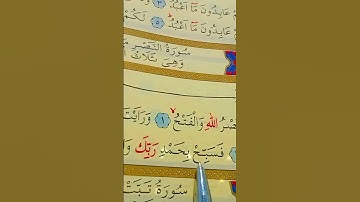 عَابِدُونَ مَٓا اَعْبُدُ ۝٣
عَابِدُونَ مَٓا اَعْبُدُ ۝٥ لَكُمْ
سُورَةُ النَّصْرِ
وَهِيَ ثَلَاثُ
اللّٰهِ وَالْفَتْحُۙ ۝١ وَرَاَيْتَ
فَسَبِّحْ بِحَمْدِ رَبِّكَ
سُورَةُ تَبَّتْ